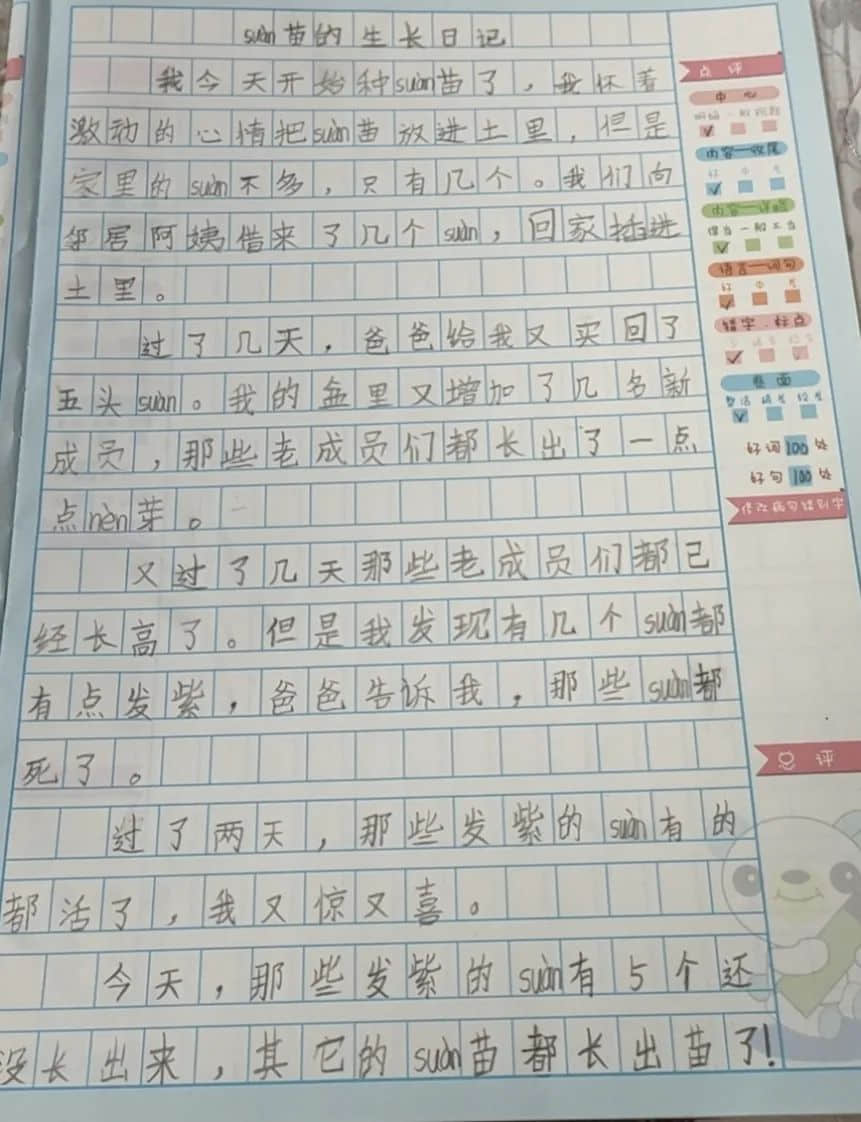 suàn苗的生长日记
我今天开始种suàn苗了，我怀着
激动的心情把suàn苗放进土里，但是
家里的suàn不多，只有几个。我们向
邻居阿姨借来了几个suàn，回家插进
土里。
过了几天，爸爸给我又买回了
五头suàn。我的盆里又增加了几名新
成员，那些老成员们都长出了一点
点nèn芽。
又过了几天那些老成员们都已
经长高了。但是我发现有几个suàn都
有点发紫，爸爸告诉我，那些suàn都
死了。
过了两天，那些发紫的suàn有的
都活了，我又惊又喜。
今天，那些发紫的suàn有5个还
没长出来，其它的suàn苗都长出苗了！
点评
中心
明确 一般
内容—收尾
好 中 差
内容—详略
得当 一般 不当
语言—词句
好 中 差
错字.标点
卷面
整洁
好词100处
好句100处
修改病句错别字
总评